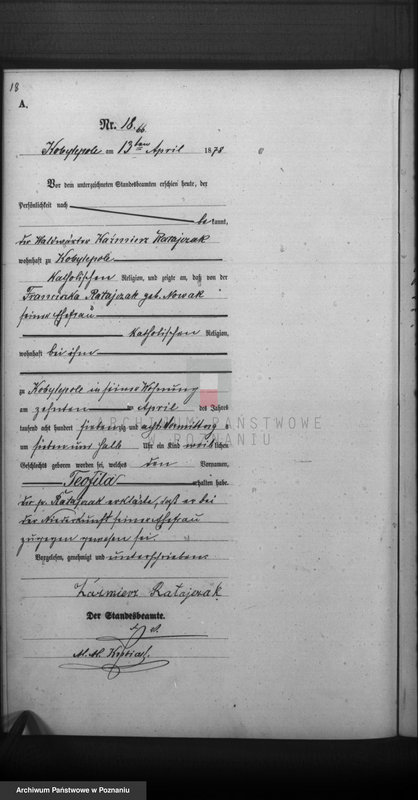 18
A.
Nr. 18.
Kobylepole am 13ten April 1878
Vor dem unterzeichneten Standesbeamten erschien heute, der
Persönlichkeit nach
bekannt,
der Waldwärter Kaźmierz Ratajczak
wohnhaft zu Kobylepole
katholischen Religion, und zeigte an, daß von der
Franciszka Ratajczak geb. Nowak
seiner Ehefrau
katholischen Religion,
wohnhaft bei ihm
zu Kobylepole in seiner Wohnung
am zehnten ten April des Jahres
tausend acht hundert siebenzig und acht Vormittag
um sieben und halb Uhr ein Kind weiblichen
Geschlechts geboren worden sei, welches den Vornamen,
Teofila
erhalten habe.
Der p. Ratajczak erklärte, daß er bei
der Niederkunft seiner Ehefrau
zugegen gewesen sei.
Vorgelesen, genehmigt und unterschrieben
Kaźmierz Ratajczak
Der Standesbeamte.
ARCHIWUM PAŃSTWOWE
POZNANIU
Archiwum Państwowe w Poznaniu